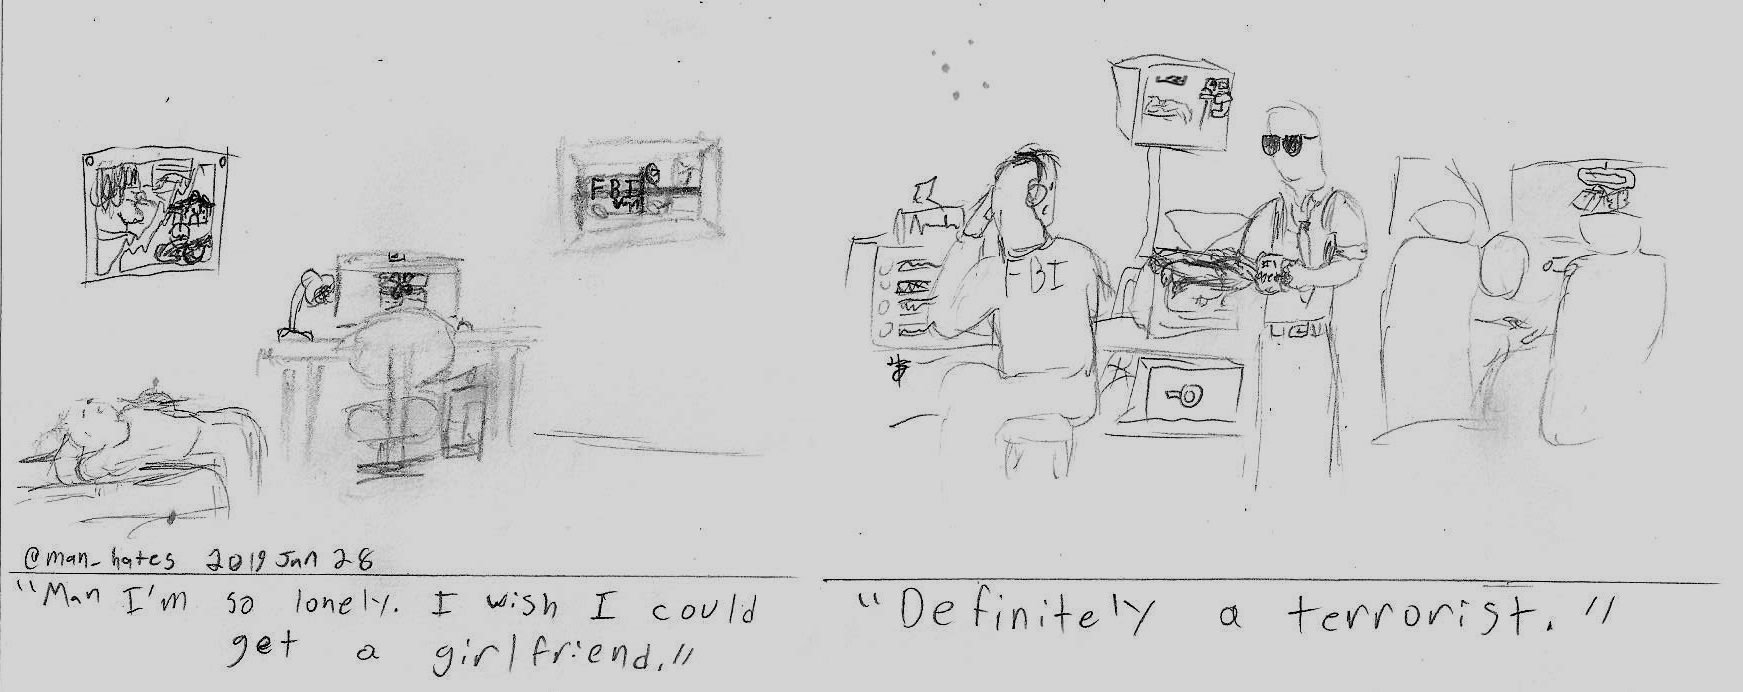 FBI
Van
FBI
#1
@man_hates 2019 Jan 28
"Man I'm so lonely. I wish I could
get a girlfriend."
"Definitely a terrorist."